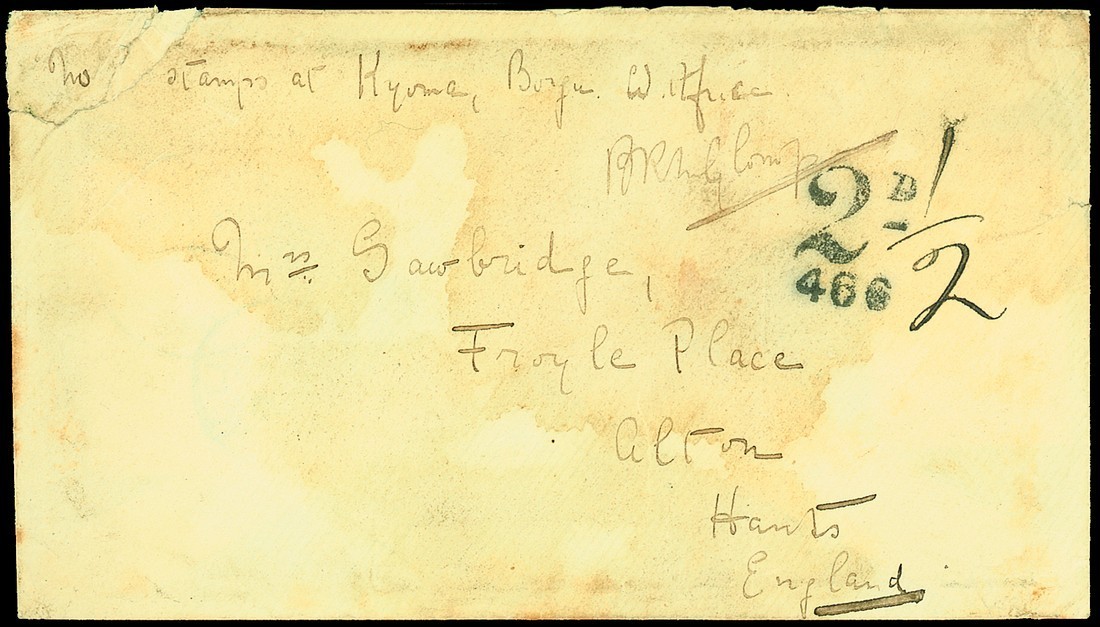 No stamps at Kyoma, Borgu. W. Africa.
2D 1/2
466
Mrs. Sawbridge,
Froyle Place
Alton
Hants
England